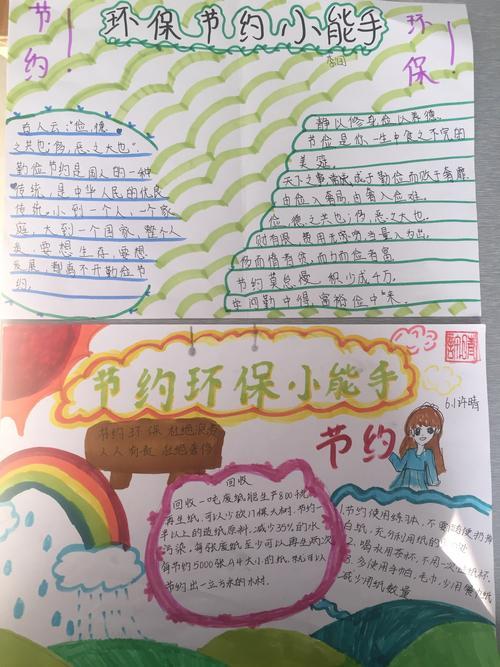 节约
环保节约小能手
环保
古人云:"俭,德
之共也;侈,恶之大也。"
勤俭节约是用人的一种
传统,是中华人民的优良
传统。小到一个人,一个家
庭,大到一个国家,整个人
类,要想生存,要想
发展,都离不开勤俭节
约。
静以修身,俭以养德。
节俭是你一生中食之不完的
美筵。
天下之事,常成于勤俭而败于奢靡
由俭入奢易,由奢入俭难。
俭,德之共也;侈,恶之大也。
财有限,费用无穷,当量入为出。
侈而惰者贫,而力而俭者富。
节约莫怠慢,积少成千万。
学问勤中得,富裕俭中来。
节约环保小能手
节约环保 杜绝浪费
人人有责
节约
6小许晴
回收
回收一吨废纸能生产800
再生纸,可以少砍17棵大树,节约一
半以上的造纸原料,减少35%的水
污染,每张废纸至少可以再生两次
每节约5000张A4大小的纸,就可以
节约出一立方米的木材。
节约使用练习本,不要随便扔
白纸,充分利用纸的
2、喝水用茶杯,不用一次性纸杯
3、多使用手帕,毛巾,少用
减少用纸数量